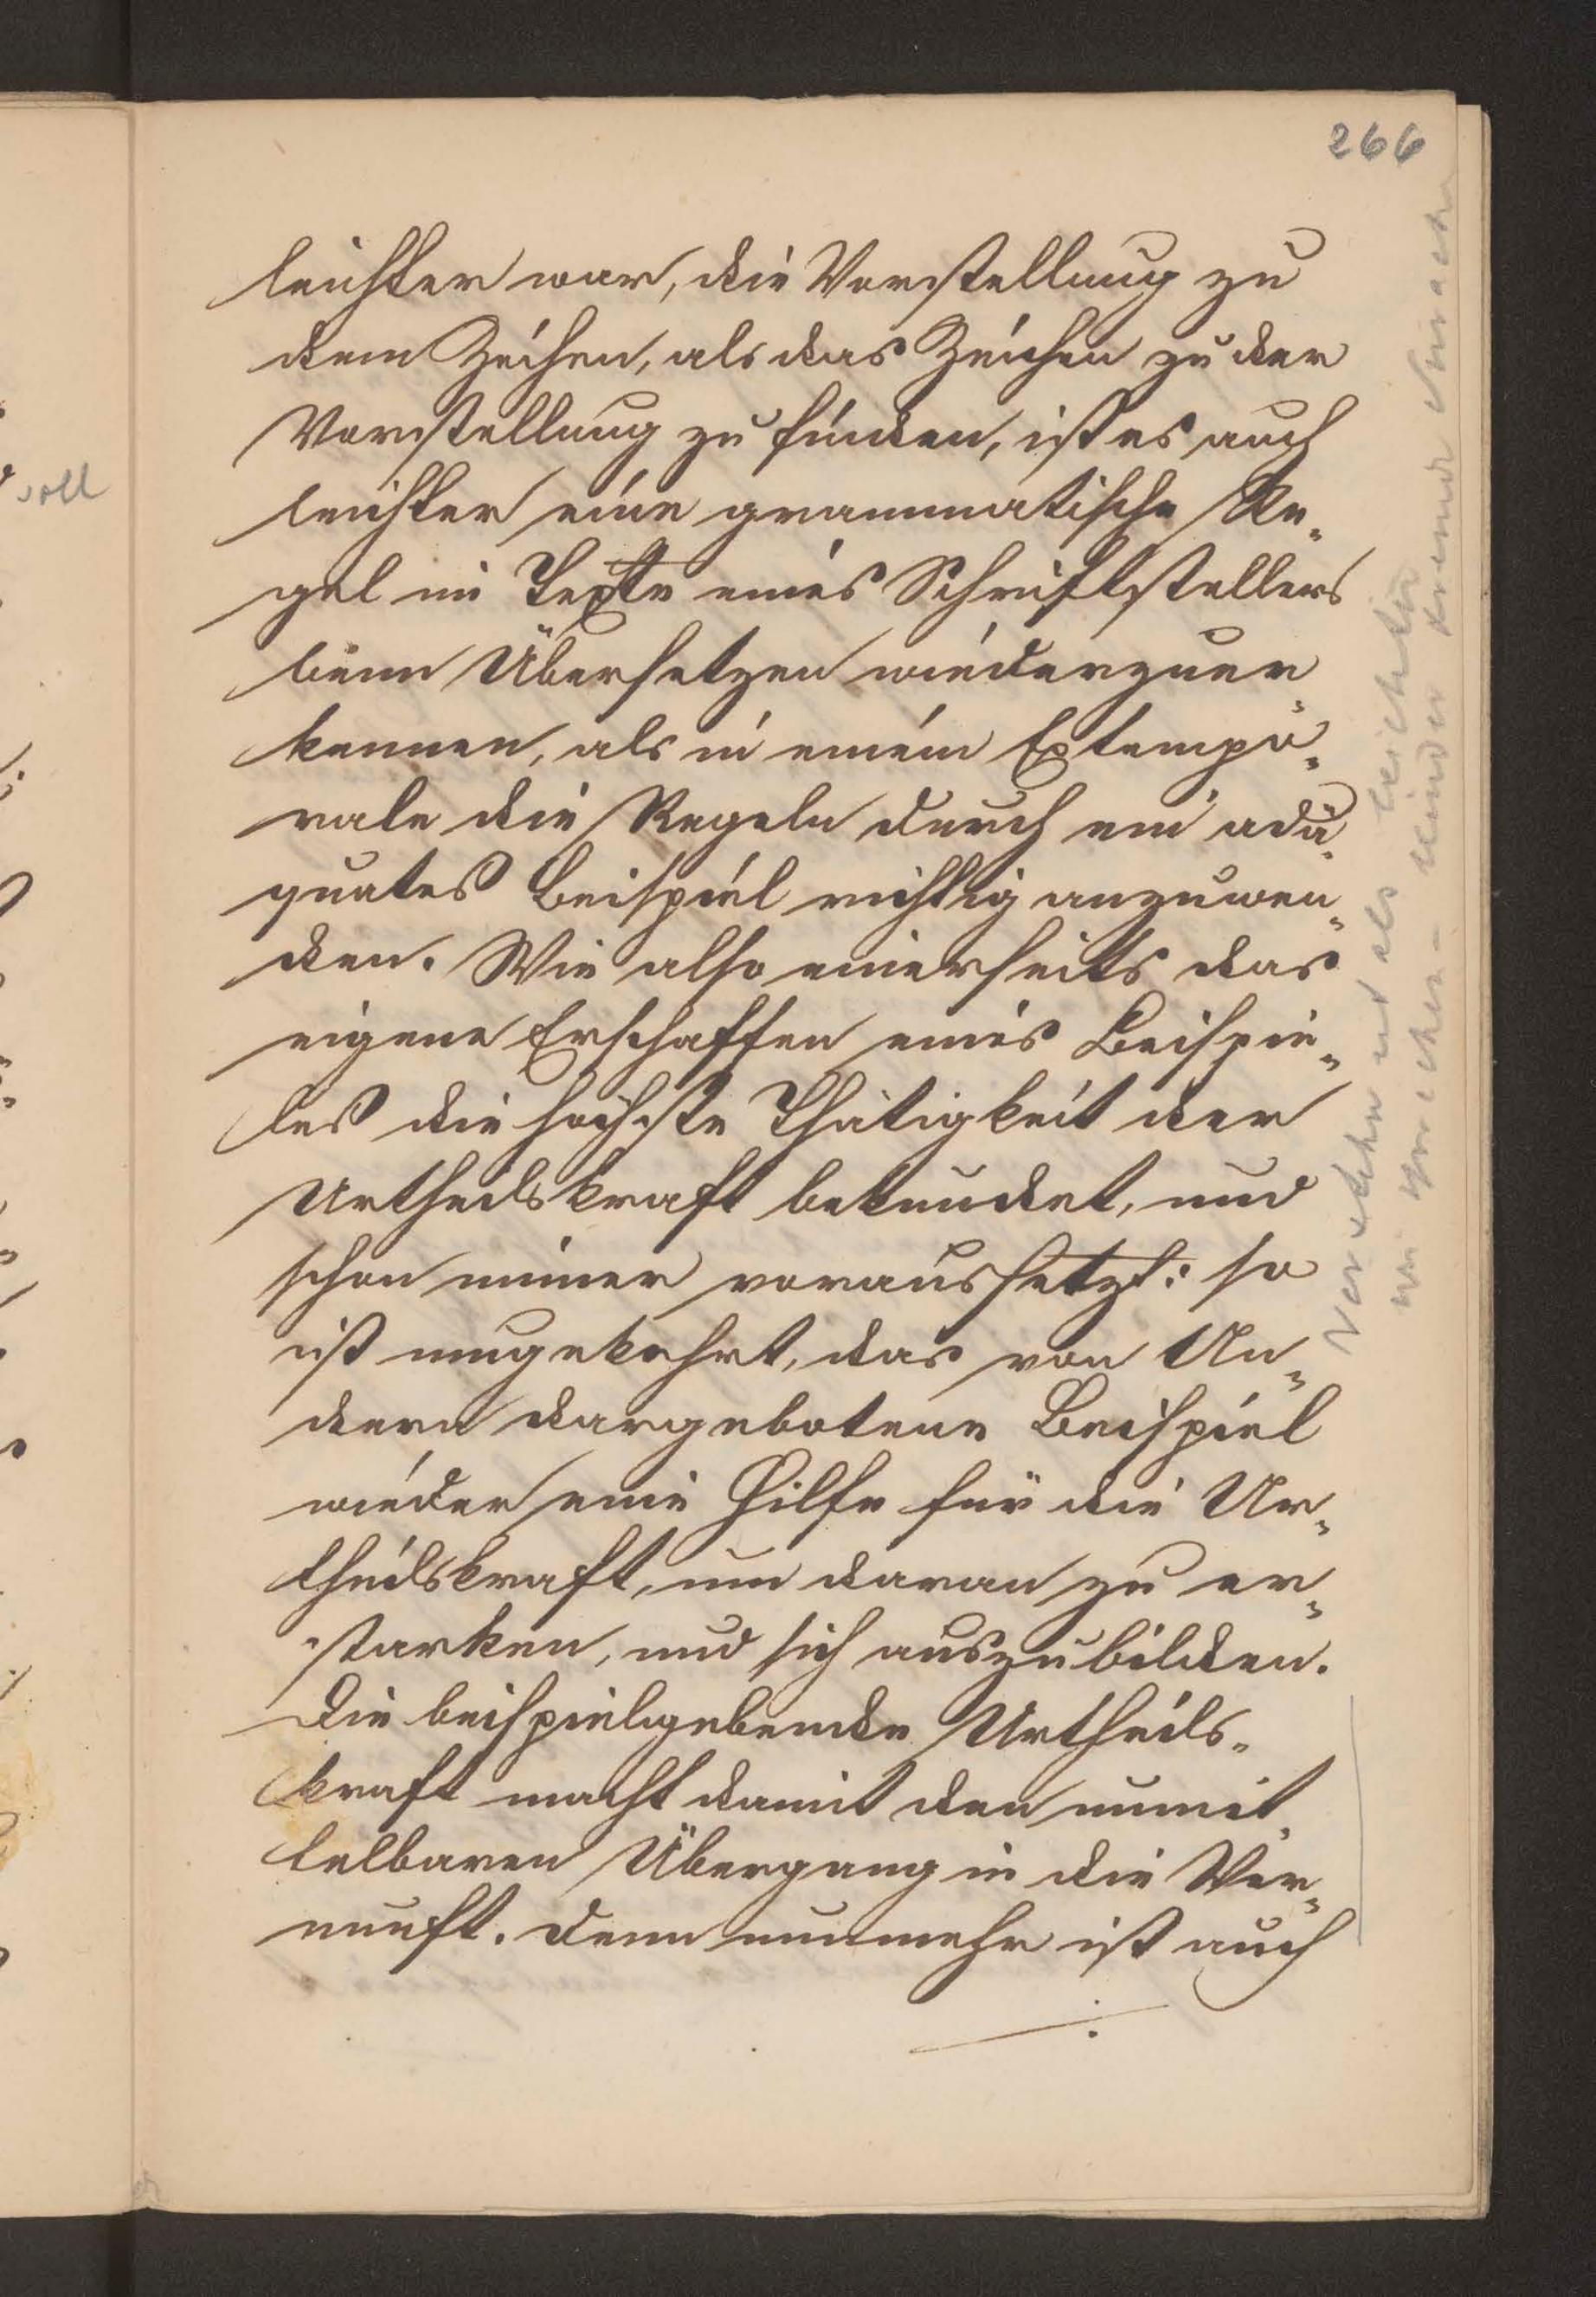 266
leichter war, die Vorstellung zu
dem Zeichen, als das Zeichen zu der
Vorstellung zu finden, ist es auch
leichter eine grammatische Re=
gel im Texte eines Schriftstellers
beim Übersetzen wiederzuer=
kennen, als in einem Extempo=
rale die Regeln durch ein adä=
quates Beispiel richtig anzuwen=
den. Wie also einerseits das
eigene Erschaffen eines Beispie=
les die höchste Thätigkeit der
Urtheilskraft bekundet, und
schon immer voraussetzt: so
ist umgekehrt, das von An=
dern dargebotene Beispiel
wieder eine Hilfe für die Ur=
theilskraft, um daran zu er=
starken, und sich auszubilden.
Die beispielgebende Urtheils=
kraft macht damit den unmit=
telbaren Übergang in die Ver=
nunft. Denn nunmehr ist auch
Verstehen ist als leichter
sprechen - Kinder fremde Sprache
voll